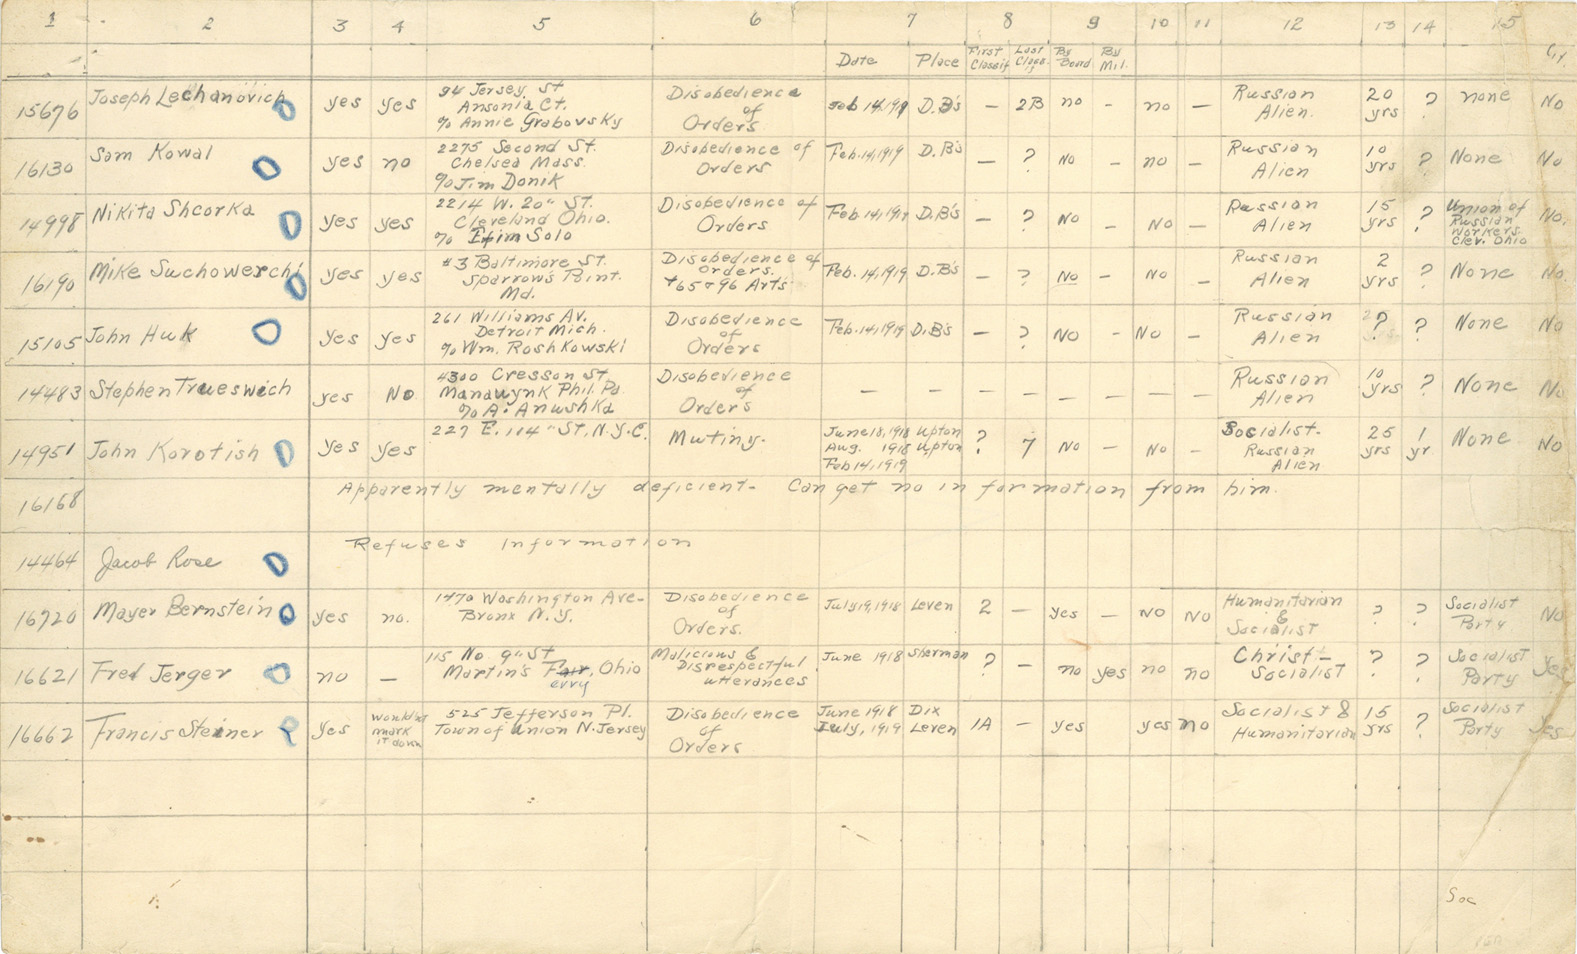 1 2 3 4 5 6 7 8 9 10 11 12 13 14 15
Date Place First Classif Last Classif By Board By Mil. Cit.
15676 Joseph Lechanovich yes yes 94 Jersey, St Ansonia Ct. % Annie Grabovsky Disobedience of Orders Feb 14, 1919 D.B's – 2B no – no – Russian Alien. 20 yrs ? none No
16130 Sam Kowal yes no 2275 Second St. Chelsea Mass. % Jim Donik Disobedience of Orders Feb. 14, 1919 D.B's – ? No – no – Russian Alien 10 yrs ? None No
14998 Nikita Shcorka yes yes 2214 W. 20" St. Cleveland Ohio. % Efim Solo Disobedience of Orders Feb 14, 1919 D.B's – ? No – No – Russian Alien 15 yrs ? Union of Russian Workers. Clev. Ohio No.
16190 Mike Suchowerchi yes yes #3 Baltimore St. Sparrow's Point. Md. Disobedience of Orders. + 65 & 96 Arts. Feb. 14, 1919 D.B's – ? No – No – Russian Alien 2 yrs ? None No
15105 John Huk yes yes 261 Williams Av. Detroit Mich. % Wm. Roshkowski Disobedience of Orders Feb. 14, 1919 D.B's – ? No – No – Russian Alien ? ? None No
14483 Stephen Trueswich yes No 4300 Cresson St. Manawynk Phil. Pa. % A. Anushka Disobedience of Orders – – – – – – – – Russian Alien 10 yrs ? None No
14951 John Korotish yes yes 227 E. 104" St, N.Y.C. Mutiny. June 18, 1918 Upton Aug. 1918 Upton Feb 14, 1919 ? 7 No – No – Socialist- Russian Alien 25 yrs 1 yr None No
16168 Apparently mentally deficient- Can get no information from him.
14464 Jacob Rose Refuses Information
16720 Mayer Bernstein yes no. 1470 Washington Ave- Bronx N.Y. Disobedience of Orders. July 19, 1918 Leven 2 – yes – No No Humanitarian & Socialist ? ? Socialist Party No
16621 Fred Jerger no – 115 No 9" St Martin's Ferry, Ohio Malicious & Disrespectful utterances June 1918 Sherman ? – no yes no no Christ- Socialist ? ? Socialist Party Yes
16662 Francis Steiner yes Would not mark it down 525 Jefferson Pl. Town of Union N. Jersey Disobedience of Orders June 1918 Dix July, 1919 Leven 1A – yes yes no Socialist & Humanitarian 15 yrs ? Socialist Party Yes
Soc